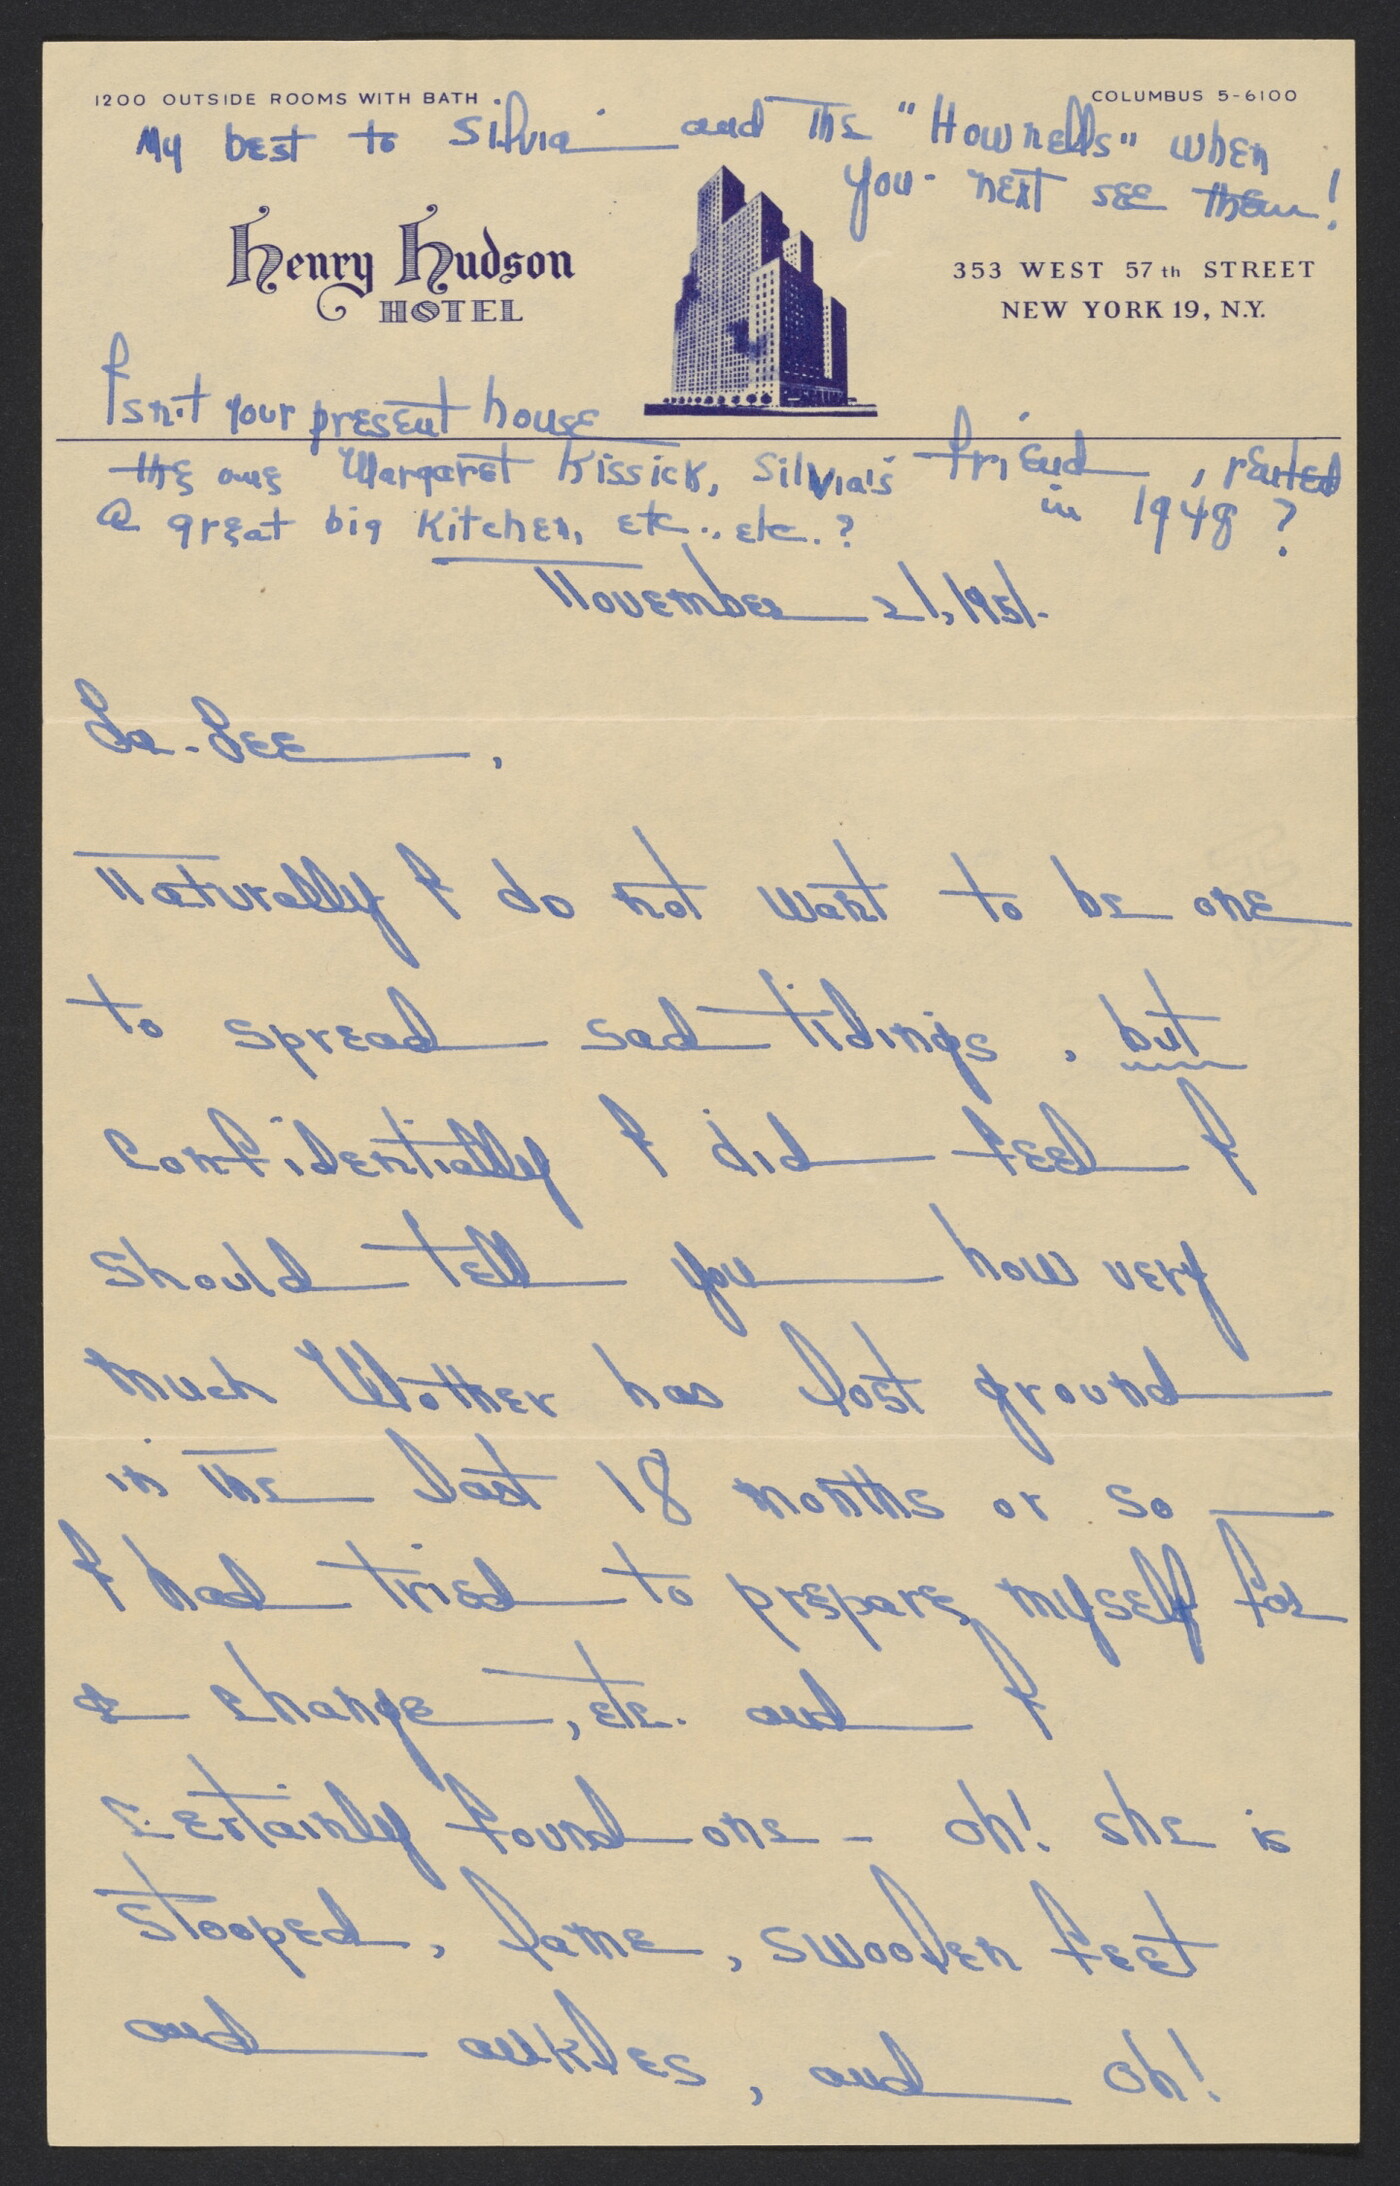 1200 OUTSIDE ROOMS WITH BATH
COLUMBUS 5-6100
My best to Silvia and the "Hownells" when
you - next see them!
Henry Hudson
HOTEL
353 WEST 57th STREET
NEW YORK 19, N.Y.
Isn't your present house
the one Margaret Kissick, Silvia's friend, rented
in 1948?
@ great big kitchen, etc., etc.?
November 21, 1951.
La-Lee,
Naturally I do not want to be one
to spread sad tidings, but
confidentially I did feel I
should tell you how very
much Mother has lost ground
in the last 18 months or so —
I had tried to prepare myself for
a change, etc. and I
certainly found one - oh! she is
stooped, lame, swoolen feet
and ankles, and oh!